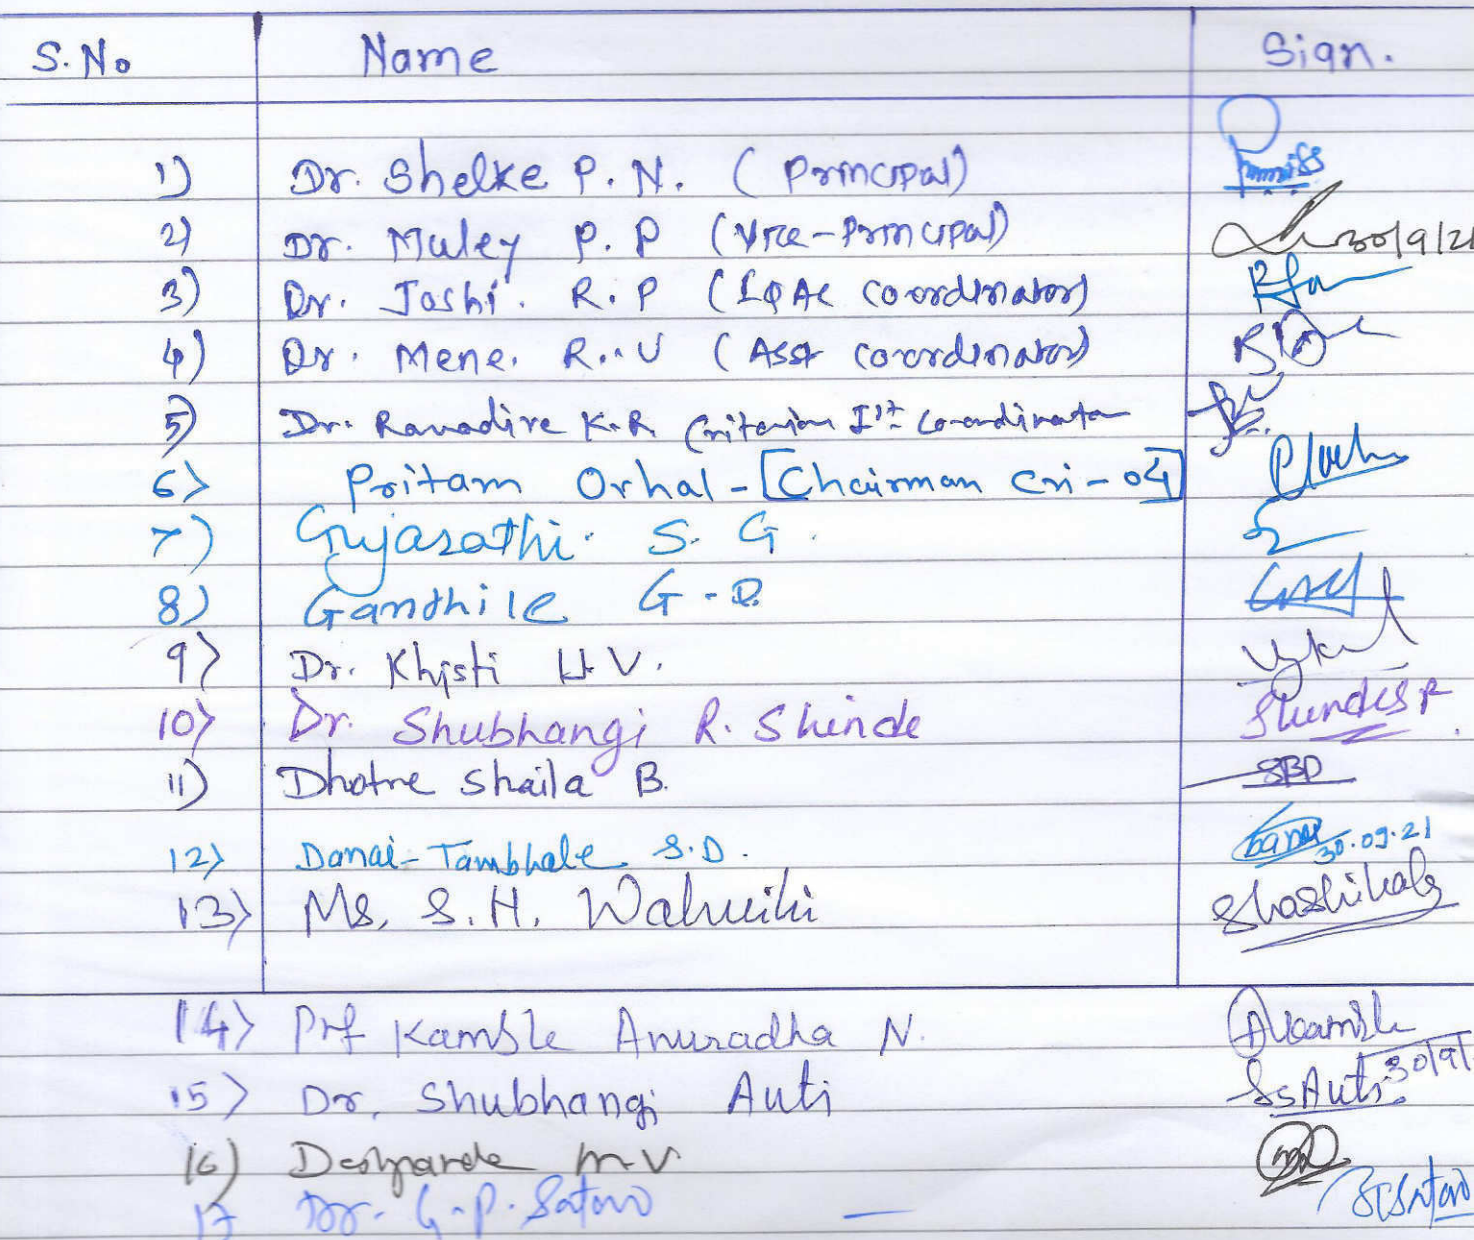 S.No Name Sign.
1) Dr. Shelke P. N. ( Principal)
2) Dr. Muley P. P (Vice-Principal) 30/9/21
3) Dr. Joshi. R. P (IQAC Coordinator)
4) Dr. Mene. R. V ( Asst coordinator)
5) Dr. Ranadive K.R. Criterion Ist Co-ordinator
6) Pritam Orhal - [Chairman Cri-04]
7) Gujarathi. S. G.
8) Gandhile G.D.
9) Dr. Khisti U.V.
10) Dr. Shubhangi R. Shinde ShindeSR.
11) Dhotre Shaila B. SBD
12) Danai-Tambhale S.D. 30.09.21
13) Ms. S. H. Shashikala
14) Prf Kamble Anuradha N. AKamble
15) Dr. Shubhangi Auti SsAuti 30/9/
16) Deshpande M.V
17 Dr. G.P. Satav —